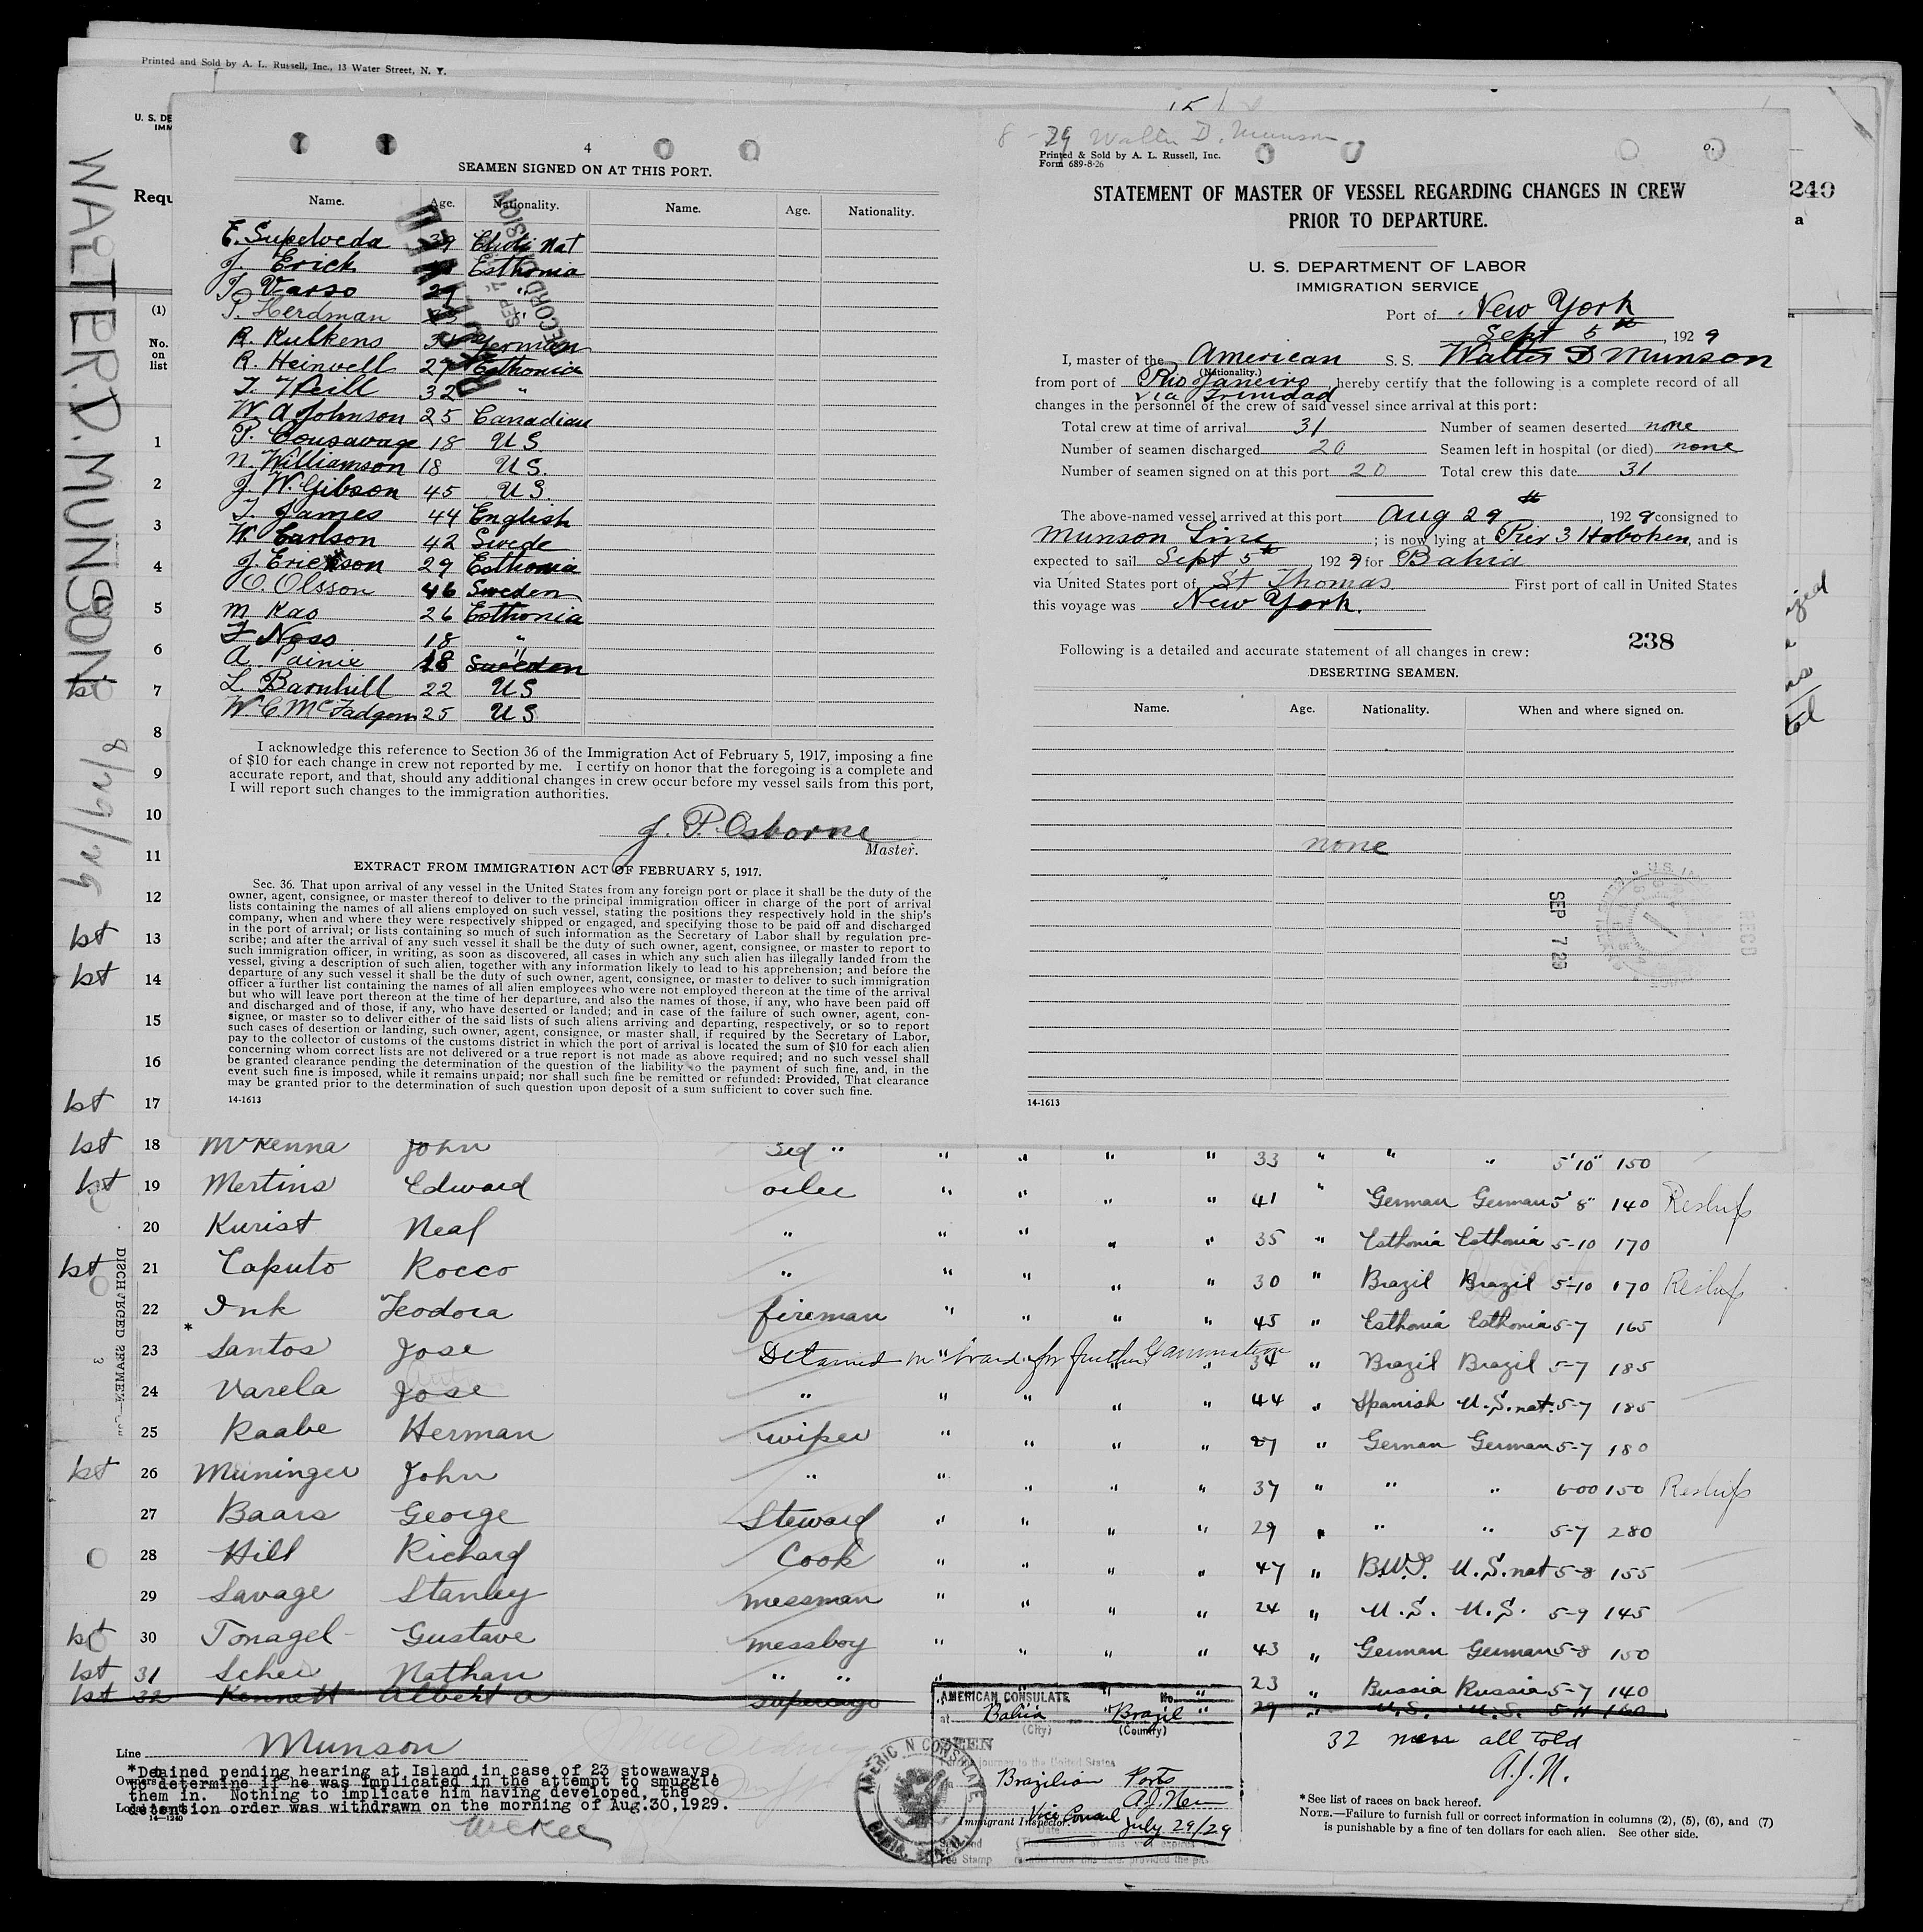 Printed and Sold by A. L. Russell, Inc., 13 Water Street, N. Y.
WALTER.D.MUNSON
8/29/29
U. S. DE
IMM
Requ
(1)
No. on list
4
SEAMEN SIGNED ON AT THIS PORT.
Name. Age. Nationality. Name. Age. Nationality.
E. Supelveda 39 Chili Nat
J. Erick Esthonia
T. Varso 29 "
P. Herdman "
R. Kulkens German
R. Heinvell 27 Esthonia
T. Neill 32 "
W. A Johnson 25 Canadian
P. Cousavage 18 U S
N. Williamson 18 U S.
J. W. Gibson 45 U S.
T. James 44 English
W. Carlson 42 Swede
J. Erickson 29 Esthonia
O. Olsson 46 Sweden
M Kao 26 Esthonia
F Noso 18 "
A. Painie 18 Sweden
L. Barnhill 22 U S
W C McFadgom 25 U S
I acknowledge this reference to Section 36 of the Immigration Act of February 5, 1917, imposing a fine
of $10 for each change in crew not reported by me. I certify on honor that the foregoing is a complete and
accurate report, and that, should any additional changes in crew occur before my vessel sails from this port,
I will report such changes to the immigration authorities.
J. P. Osborne
Master.
EXTRACT FROM IMMIGRATION ACT OF FEBRUARY 5, 1917.
Sec. 36. That upon arrival of any vessel in the United States from any foreign port or place it shall be the duty of the
owner, agent, consignee, or master thereof to deliver to the principal immigration officer in charge of the port of arrival
lists containing the names of all aliens employed on such vessel, stating the positions they respectively hold in the ship's
company, when and where they were respectively shipped or engaged, and specifying those to be paid off and discharged
in the port of arrival; or lists containing so much of such information as the Secretary of Labor shall by regulation pre-
scribe; and after the arrival of any such vessel it shall be the duty of such owner, agent, consignee, or master to report to
such immigration officer, in writing, as soon as discovered, all cases in which any such alien has illegally landed from the
vessel, giving a description of such alien, together with any information likely to lead to his apprehension; and before the
departure of any such vessel it shall be the duty of such owner, agent, consignee, or master to deliver to such immigration
officer a further list containing the names of all alien employees who were not employed thereon at the time of the arrival
but who will leave port thereon at the time of her departure, and also the names of those, if any, who have been paid off
and discharged and of those, if any, who have deserted or landed; and in case of the failure of such owner, agent, con-
signee, or master so to deliver either of the said lists of such aliens arriving and departing, respectively, or so to report
such cases of desertion or landing, such owner, agent, consignee, or master shall, if required by the Secretary of Labor,
pay to the collector of customs of the customs district in which the port of arrival is located the sum of $10 for each alien
concerning whom correct lists are not delivered or a true report is not made as above required; and no such vessel shall
be granted clearance pending the determination of the question of the liability to the payment of such fine, and, in the
event such fine is imposed, while it remains unpaid; nor shall such fine be remitted or refunded: Provided, That clearance
may be granted prior to the determination of such question upon deposit of a sum sufficient to cover such fine.
14-1613
8-29 Walter D. Munson
Printed & Sold by A. L. Russell, Inc.
Form 689-8-26
STATEMENT OF MASTER OF VESSEL REGARDING CHANGES IN CREW
PRIOR TO DEPARTURE.
240
a
U. S. DEPARTMENT OF LABOR
IMMIGRATION SERVICE
Port of New York
Sept 5th, 1929
I, master of the American S. S. Walter D Munson
(Nationality.)
from port of Rio Janeiro, hereby certify that the following is a complete record of all
via Trinidad
changes in the personnel of the crew of said vessel since arrival at this port:
Total crew at time of arrival 31 Number of seamen deserted none
Number of seamen discharged 20 Seamen left in hospital (or died) none
Number of seamen signed on at this port 20 Total crew this date 31
The above-named vessel arrived at this port Aug 29th, 1929 consigned to
Munson Line; is now lying at Pier 3 Hoboken, and is
expected to sail Sept 5th 1929 for Bahia
via United States port of St Thomas. First port of call in United States
this voyage was New York.
238
Following is a detailed and accurate statement of all changes in crew:
DESERTING SEAMEN.
Name. Age. Nationality. When and where signed on.
none
SEP 7 29
REC'D
14-1613
1
2
3
4
5
6
1st 7
8
9
10
11
12
1st 13
1st 14
15
16
1st 17
1st 18 McKenna John 3rd " " " " " 33 " " " 5'10" 150
1st 19 Mertins Edward oiler " " " " 41 " German German 5'8" 140 Reships
20 Kurist Neal " " " " " 35 " Esthonia Esthonia 5-10 170
1st 21 Caputo Rocco " " " " " 30 " Brazil Brazil 5-10 170 Reships
22 Ink Teodora fireman " " " " 45 " Esthonia Esthonia 5-7 165
* 23 Santos Jose Detained on board for further examination 34 " Brazil Brazil 5-7 185
24 Varela Jose " " " " " 44 " Spanish U.S. nat. 5-7 185
25 Raabe Herman wiper " " " " 27 " German German 5-7 180
1st 26 Muninger John " " " " " 37 " " " 6-00 150 Reships
27 Baars George Steward " " " " 29 " " " 5-7 280
28 Hill Richard Cook " " " " 47 " B.W.I. U.S. nat 5-8 155
29 Savage Stanley messman " " " " 24 " U.S. U.S. 5-9 145
1st 30 Tonagel Gustave messboy " " " " 43 " German German 5-8 150
1st 31 Scher Nathan " " " " " 23 " Russia Russia 5-7 140
1st 32 Kennett Albert A supercargo 29 " U.S. U.S. 5-11 160
DISCHARGED SEAMEN
3
Line Munson
*Detained pending hearing at Island in case of 23 stowaways,
to determine if he was implicated in the attempt to smuggle
them in. Nothing to implicate him having developed, the
detention order was withdrawn on the morning of Aug.30,1929.
Owners
14-1240
McKee
AMERICAN CONSULATE No.
at Bahia Brazil
(City) (Country)
SEEN
journey to the United States
Brazilian Ports
Vice Consul
Immigrant Inspector.
July 29/29
AMERICAN CONSULATE, BAHIA, BRAZIL
32 men all told
A.J.N.
*See list of races on back hereof.
NOTE.—Failure to furnish full or correct information in columns (2), (5), (6), and (7)
is punishable by a fine of ten dollars for each alien. See other side.